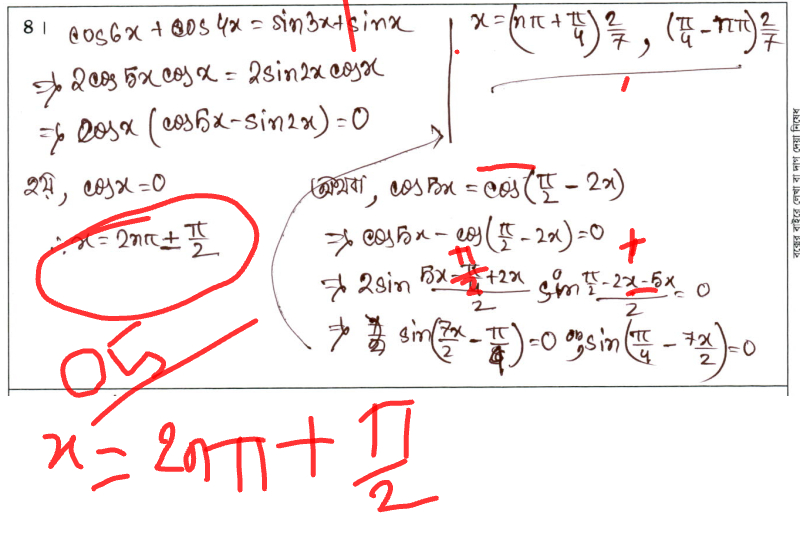 8। cos6x + cos4x = sin3x + sinx
⇒ 2cos5x cosx = 2sin2x cosx
⇒ 2cosx (cos5x - sin2x) = 0
হয়, cosx = 0
∴ x = 2nπ ± π/2
05
অথবা, cos5x = cos(π/2 - 2x)
⇒ cos5x - cos(π/2 - 2x) = 0
⇒ 2sin (5x - π/2 + 2x)/2 sin (π/2 - 2x - 5x)/2 = 0
+
⇒ sin(7x/2 - π/4) = 0 or, sin(π/4 - 7x/2) = 0
x = (nπ + π/4) 2/7, (π/4 - nπ) 2/7
x = 2nπ + π/2
বক্সের বাইরে লেখা বা দাগ দেয়া নিষেধ